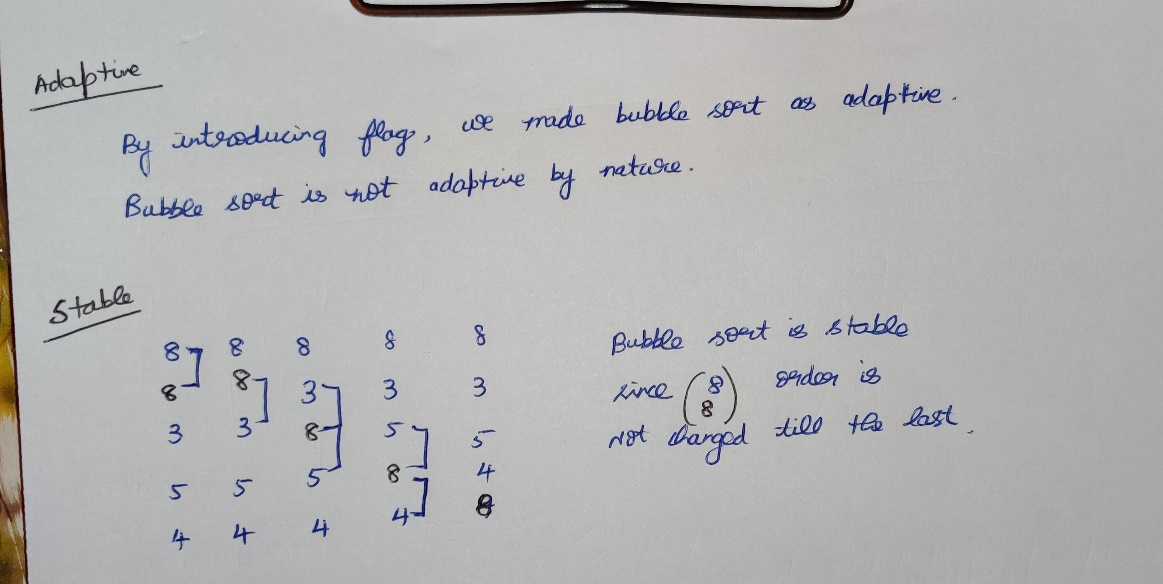 Adaptive
By introducing flag, we made bubble sort as adaptive.
Bubble sort is not adaptive by nature.
Stable
8 8 8 8 8
8 8 3 3 3
3 3 8 5 5
5 5 5 8 4
4 4 4 4 8
Bubble sort is stable
since (8 8) order is
not changed till the last.